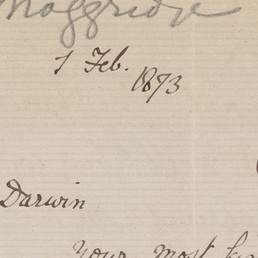 Moggridge
1 Feb.
1873
Darwin
Your most